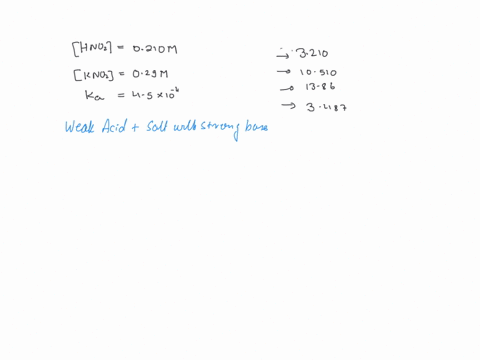 [HNO₂] = 0.210M
[KNO₂] = 0.29M
Ka = 4.5 × 10⁻⁶
→ 3.210
→ 10.510
→ 13.86
→ 3.487
Weak Acid + Salt with strong base